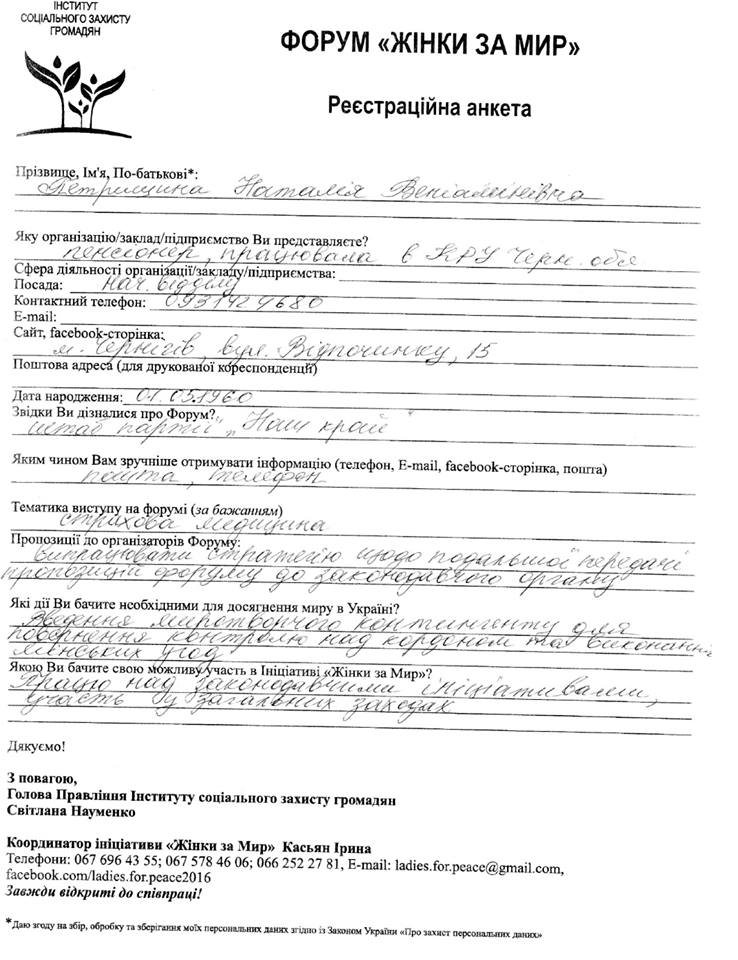 ІНСТИТУТ
СОЦІАЛЬНОГО ЗАХИСТУ
ГРОМАДЯН
ФОРУМ «ЖІНКИ ЗА МИР»
Реєстраційна анкета
Прізвище, Ім'я, По-батькові*:
Петрищина Наталія Веніамінівна
Яку організацію/заклад/підприємство Ви представляєте?
пенсіонер, працювала в КРУ Черн. обл
Сфера діяльності організації/закладу/підприємства:
Посада: нач. відділу
Контактний телефон: 0931424680
E-mail:
Сайт, facebook-сторінка:
м. Чернігів, вул. Відпочинку, 15
Поштова адреса (для друкованої кореспонденції)
Дата народження: 01.05.1960
Звідки Ви дізналися про Форум?
штаб партії „Наш край"
Яким чином Вам зручніше отримувати інформацію (телефон, E-mail, facebook-сторінка, пошта)
пошта, телефон
Тематика виступу на форумі (за бажанням)
страхова медицина
Пропозиції до організаторів Форуму:
випрацювати стратегію щодо подальшої передачі
пропозицій форуму до законодавчого органу
Які дії Ви бачите необхідними для досягнення миру в Україні?
Введення миротворчого контингенту для
повернення контролю над кордоном та виконання
мінських угод
Якою Ви бачите свою можливу участь в Ініціативі «Жінки за Мир»?
Працю над законодавчими ініціативами,
участь у загальних заходах
Дякуємо!
З повагою,
Голова Правління Інституту соціального захисту громадян
Світлана Науменко
Координатор ініціативи «Жінки за Мир» Касьян Ірина
Телефони: 067 696 43 55; 067 578 46 06; 066 252 27 81, E-mail: ladies.for.peace@gmail.com,
facebook.com/ladies.for.peace2016
Завжди відкриті до співпраці!
*Даю згоду на збір, обробку та зберігання моїх персональних даних згідно із Законом України «Про захист персональних даних»